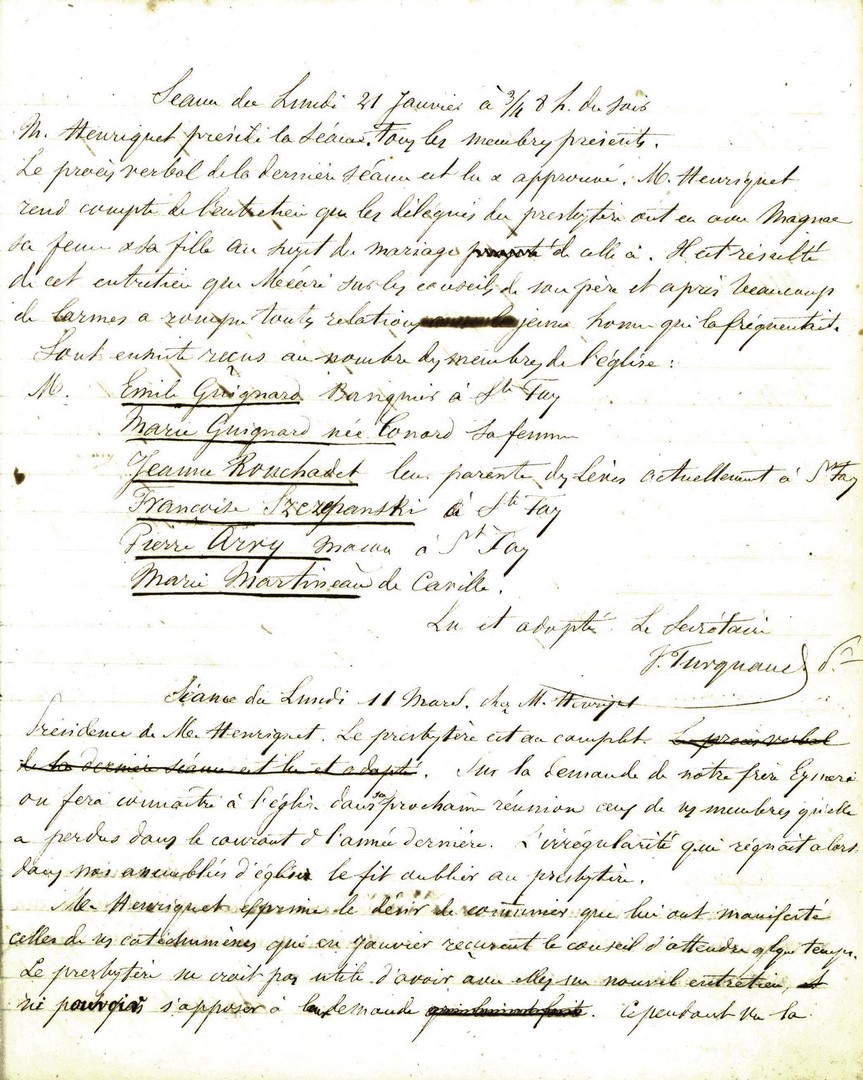 Séance du Lundi 21 Janvier à 3/4 8 h. du soir
M. Henriquet préside la séance. Tous les membres présents.
Le procès verbal de la dernière séance est lu & approuvé. M. Henriquet
rend compte de l'entretien que les délégués du presbytère ont eu avec Magnac
sa femme & sa fille au sujet du mariage de celle à. Il est résulté
de cet entretien que sur les conseils de son père et après beaucoup
de larmes a rompu toutes relations jeune homme qui la fréquentait.
Sont ensuite reçus au nombre des membres de l'église :
M. Emile Guignard Banquier à Ste Foy
Marie Guignard née Conord sa femme
Jeanne Rouchadet leur parente des Lèves actuellement à Ste Foy
Françoise Szczepanski à Ste Foy
Pierre Arvy maçon à St Foy
Marie Martineau de Carille.
Lu et adopté. Le Secrétaire
J. Turquand
Séance du Lundi 11 Mars. chez M. Henriquet
Présidence de M. Henriquet. Le presbytère est au complet. Le procès verbal
de la dernière séance est lu et adopté. Sur la demande de notre frère Eymeri
on fera connaître à l'église dans sa prochaine réunion ceux de ses membres qu'elle
a perdus dans le courant de l'année dernière. L'irrégularité qui régnait alors
dans nos assemblées d'église le fit oublier au presbytère.
M. Henriquet exprime le désir de communier que lui ont manifesté
celles de ses catéchumènes qui en Janvier reçurent le conseil d'attendre qlque temps.
Le presbytère ne croit pas utile d'avoir avec elles un nouvel entretien, et
ni pouvoir s'opposer à leur demande. Cependant vu la